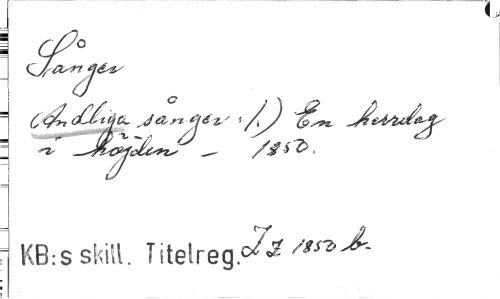 Sånger
(Andliga sånger. 1.) En herrdag
i höjden - 1850.
KB:s skill. Titelreg. Iz 1850 b.